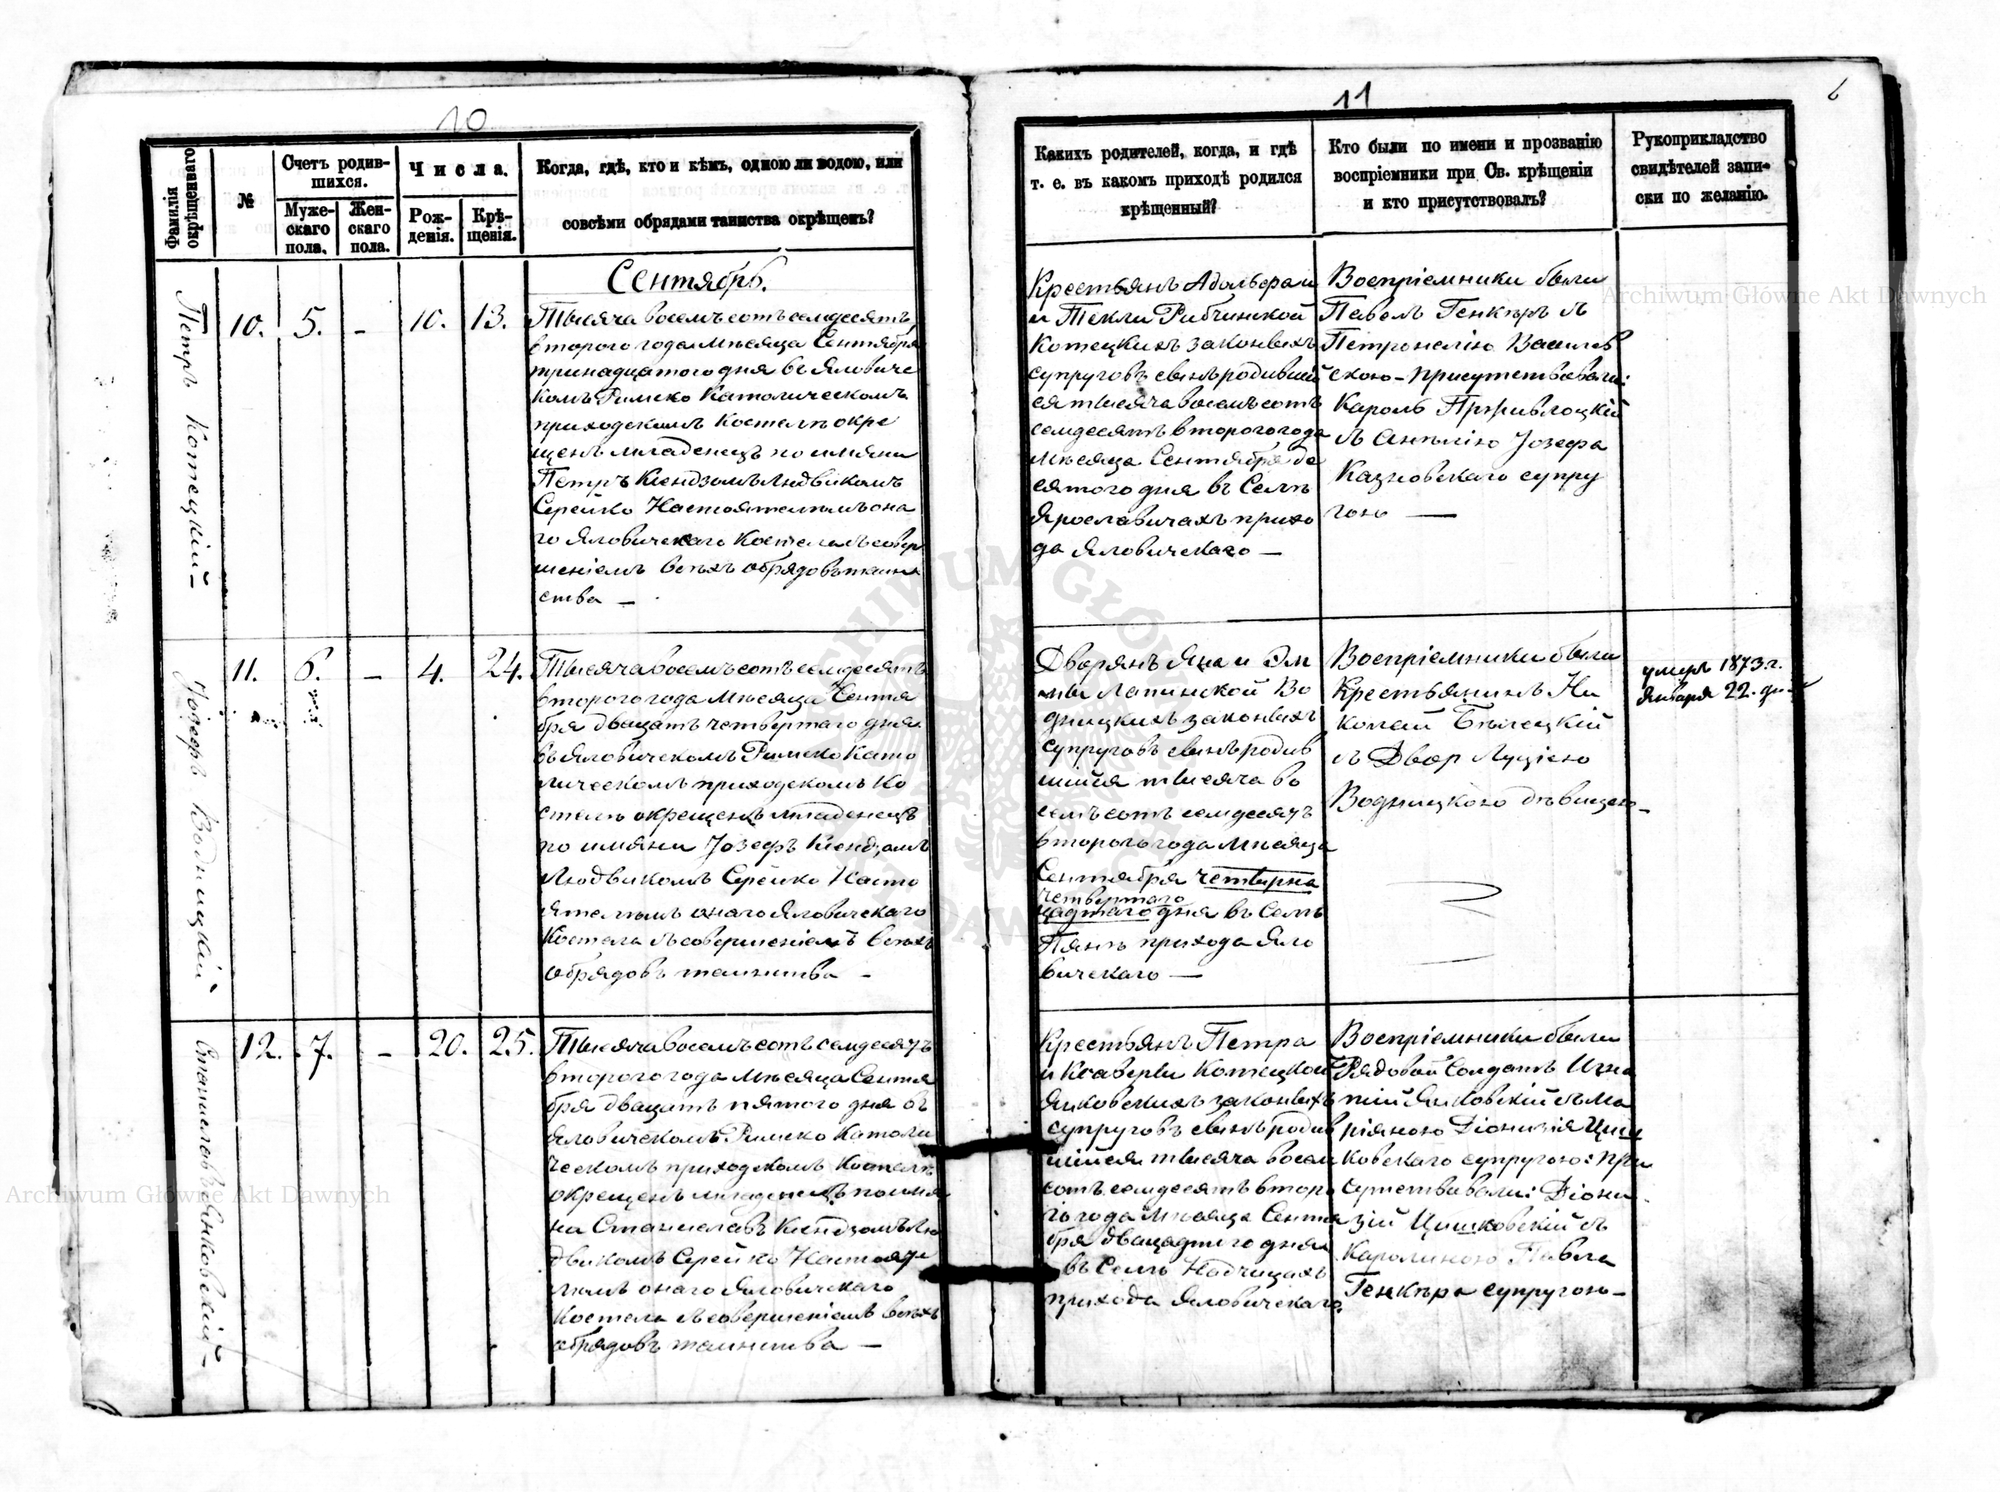 10
Фамилія
окрѣщеннаго
№
Счетъ родив-
шихся.
Муже-
скаго
пола.
Жен-
скаго
пола.
Числа.
Рож-
денія.
Крѣ-
щенія.
Когда, гдѣ, кто и кѣмъ, одною ли водою, или
совсѣми обрядами таинства окрѣщенъ?
Сентябрь.
Петръ Котецкій
10. 5. - 10. 13.
Тысяча восемъ сотъ семдесятъ
второго года Мѣсяца Сентября
тринадцатого дня въ Яловиче
комъ Римско Католическомъ
приходскомъ Костелѣ окре
щенъ младенецъ по имяни
Петръ Ксендзомъ Людвикомъ
Серейко Настоятелемъ она
го Яловичскаго Костела съ совер
шеніемъ всѣхъ обрядовъ таин
ства —
Іозефъ Водницкій
11. 6. - 4. 24.
Тысяча восемъ сотъ семдесятъ
второго года Мѣсяца Сентя
бря двацать четвертаго дня
въ Яловичскомъ Римско Като
лическомъ приходскомъ Ко
стелѣ окрещенъ младенецъ
по имяни Іозефъ Ксендзомъ
Людвикомъ Серейко Насто
ятелемъ онаго Яловичскаго
Костела съ совершеніемъ всѣхъ
обрядовъ таинства —
Станиславъ Янковскій —
12. 7. - 20. 25.
Тысяча восемъ сотъ семдесятъ
второго года Мѣсяца Сентя
бря двацать пятого дня въ
Яловичскомъ Римско Католи
ческомъ приходскомъ Костелѣ
окрещенъ младенецъ по имя
на Станиславъ Ксендзомъ Лю
двикомъ Серейко Настояте
лемъ онаго Яловичскаго
Костела съ совершеніемъ всѣхъ
обрядовъ таинства —
11
6
Какихъ родителей, когда, и гдѣ
т. е. въ какомъ приходѣ родился
крѣщенный?
Кто были по имени и прозванію
воспріемники при Св. крѣщеніи
и кто присутствовалъ?
Рукоприкладство
свидѣтелей запи-
ски по желанію.
Крестьянъ Адольфа и
и Текли Рибчинской
Котецкихъ законныхъ
супруговъ сынъ родивший
ся тысяча восемъ сотъ
семдесятъ второго года
Мѣсяца Сентября де
сятого дня въ Селѣ
Ярославичахъ прихо
да Яловичскаго —
Воспріемники были
Павелъ Генкеръ съ
Петронелію Василев
скою – присутствовали:
Кароль Прживлоцкій
съ Анелію Іозефа
Казновскаго супру
гою —
Дворянъ Яна и Эм
мы Лапинской Во
дницкихъ законныхъ
супруговъ сынъ родив
шійся тысяча во
семъ сотъ семдесятъ
второго года Мѣсяца
Сентября четырна
четвертаго
цадтаго дня въ Селѣ
Пянѣ прихода Яло
вичскаго —
Воспріемники были
Крестьянинъ Ни
колай Бѣлецкій
съ Двор Луцією
Водницкою дѣвицею —
умеръ 1873 г.
Января 22. дня
Крестьянъ Петра
и Ксаверы Котецкой
Янковскихъ законныхъ
супруговъ сынъ родив
шійся тысяча восем
сотъ семдесятъ втор
го года Мѣсяца Сентя
бря двацадтого дня
въ Селѣ Надчицахъ
прихода Яловичскаго.
Воспріемники были
Рядовой Солдатъ Игна
тій Янковскій съ Ма
ріяною Діонизія Циш
ковскаго супругою: при
сутствовали: Діони
зій Цишковскій съ
Каролиною Павла
Генкера супругою —
Archiwum Główne Akt Dawnych
Archiwum Główne Akt Dawnych
ARCHIWUM GŁÓWNE AKT DAWNYCH